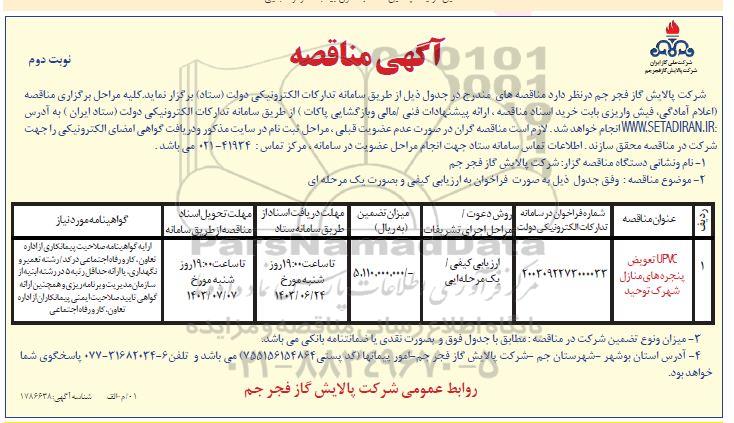 شرکت ملی گاز ایران
شرکت پالایش گاز فجر جم
آگهی مناقصه
نوبت دوم
شرکت پالایش گاز فجر جم درنظر دارد مناقصه های مندرج در جدول ذیل از طریق سامانه تدارکات الکترونیکی دولت (ستاد) برگزار نماید. کلیه مراحل برگزاری مناقصه
(اعلام آمادگی، فیش واریزی بابت خرید اسناد مناقصه ، ارائه پیشنهادات فنی /مالی وبازگشایی پاکات ) از طریق سامانه تدارکات الکترونیکی دولت (ستاد ایران ) به آدرس
WWW.SETADIRAN.IR: انجام خواهد شد . لازم است مناقصه گران در صورت عدم عضویت قبلی ، مراحل ثبت نام در سایت مذکور ودریافت گواهی امضای الکترونیکی را جهت
شرکت در مناقصه محقق سازند . اطلاعات تماس سامانه ستاد جهت انجام مراحل عضویت در سامانه ، مرکز تماس : ۴۱۹۳۴-۰۲۱ می باشد .
۱- نام ونشانی دستگاه مناقصه گزار: شرکت پالایش گاز فجر جم
۲- موضوع مناقصه : وفق جدول ذیل به صورت فراخوان به ارزیابی کیفی و بصورت یک مرحله ای
ردیف
عنوان مناقصه
شماره فراخوان در سامانه
تدارکات الکترونیکی دولت
روش دعوت /
مراحل اجرای تشریفات
میزان تضمین
(به ریال)
مهلت دریافت اسناد از
طریق سامانه ستاد
مهلت تحویل اسناد
مناقصه از طریق سامانه
گواهینامه مورد نیاز
۱
UPVC تعویض
پنجره های منازل
شهرک توحید
۲۰۰۳۰۹۲۲۷۳۰۰۰۰۳۳
ارزیابی کیفی /
یک مرحله ایی
۵,۱۱۰,۰۰۰,۰۰۰/-
تا ساعت ۱۹:۰۰ روز
شنبه مورخ
۱۴۰۳/۰۶/۲۴
تا ساعت ۱۹:۰۰ روز
شنبه مورخ
۱۴۰۳/۰۷/۰۷
ارایه گواهینامه صلاحیت پیمانکاری از اداره
تعاون ، کار و رفاه اجتماعی در کد / رشته تعمیر و
نگهداری . یا ارائه حداقل رتبه ۵ در رشته ابنیه از
سازمان مدیریت و برنامه ریزی و همچنین ارائه
گواهی تایید صلاحیت ایمنی پیمانکاران از اداره
تعاون ، کار و رفاه اجتماعی
۳- میزان ونوع تضمین شرکت در مناقصه : مطابق با جدول فوق و بصورت نقدی یا ضمانتنامه بانکی می باشد.
۴- آدرس استان بوشهر -شهرستان جم -شرکت پالایش گاز فجر جم-امور پیمانها (کد پستی ۷۵۵۱۵۶۱۵۴۸۶۴) می باشد و تلفن ۶-۳۱۶۸۲۰۳۴-۰۷۷ پاسخگوی شما
خواهد بود.
روابط عمومی شرکت پالایش گاز فجر جم
۰۱/م-الف
شناسه آگهی: ۱۷۸۶۶۳۸
ParsNamadData
۰۲۱-۸۸۳۴۹۶۷۰-۵